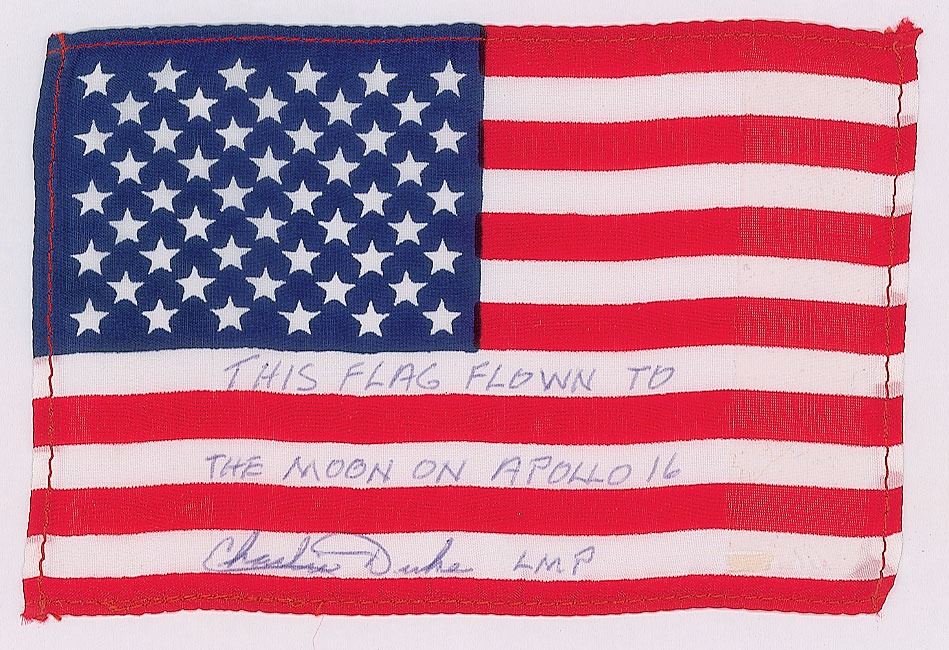 THIS FLAG FLOWN TO
THE MOON ON APOLLO 16
Charlie Duke LMP